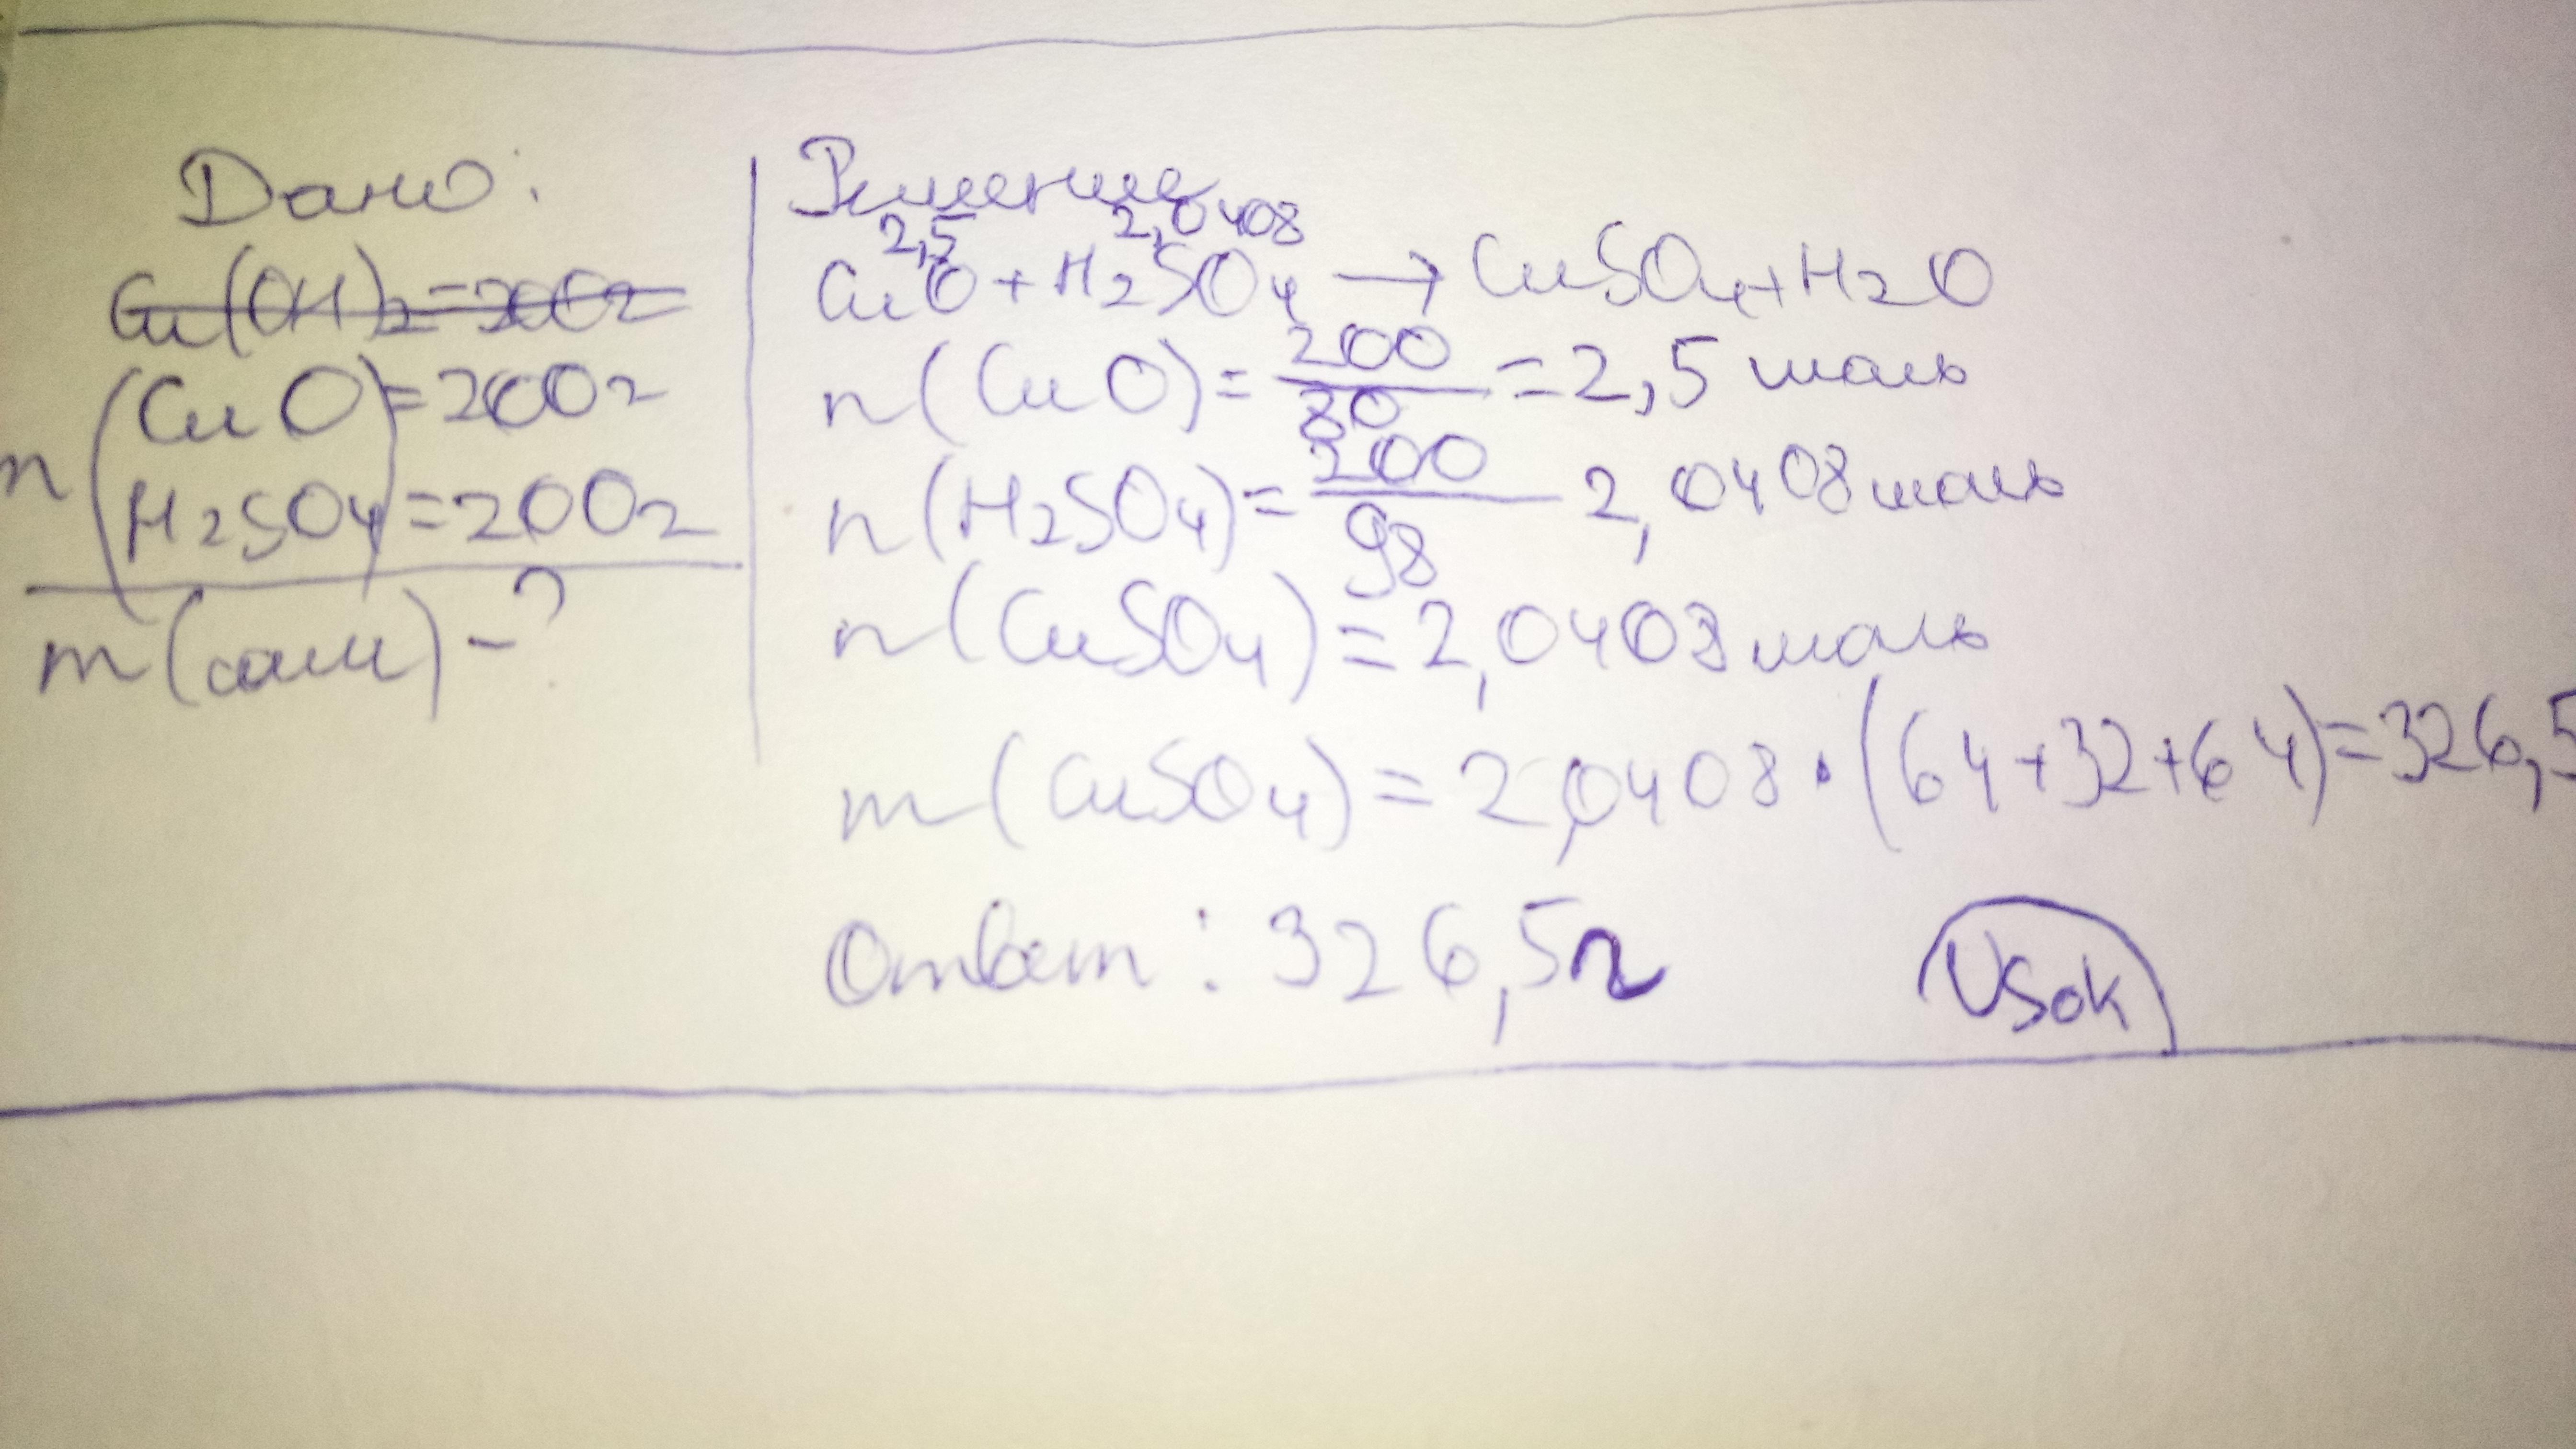 Дано:
Cu(OH)2=200г
(CuO)=200г
n
H2SO4=200г
m(соли)-?
Решение
2,5 2,0408
CuO+H2SO4→CuSO4+H2O
n(CuO)=200/80=2,5 моль
n(H2SO4)=200/98 2,0408 моль
n(CuSO4)=2,0408 моль
m(CuSO4)=2,0408·(64+32+64)=326,5
Ответ: 326,5г
VSok